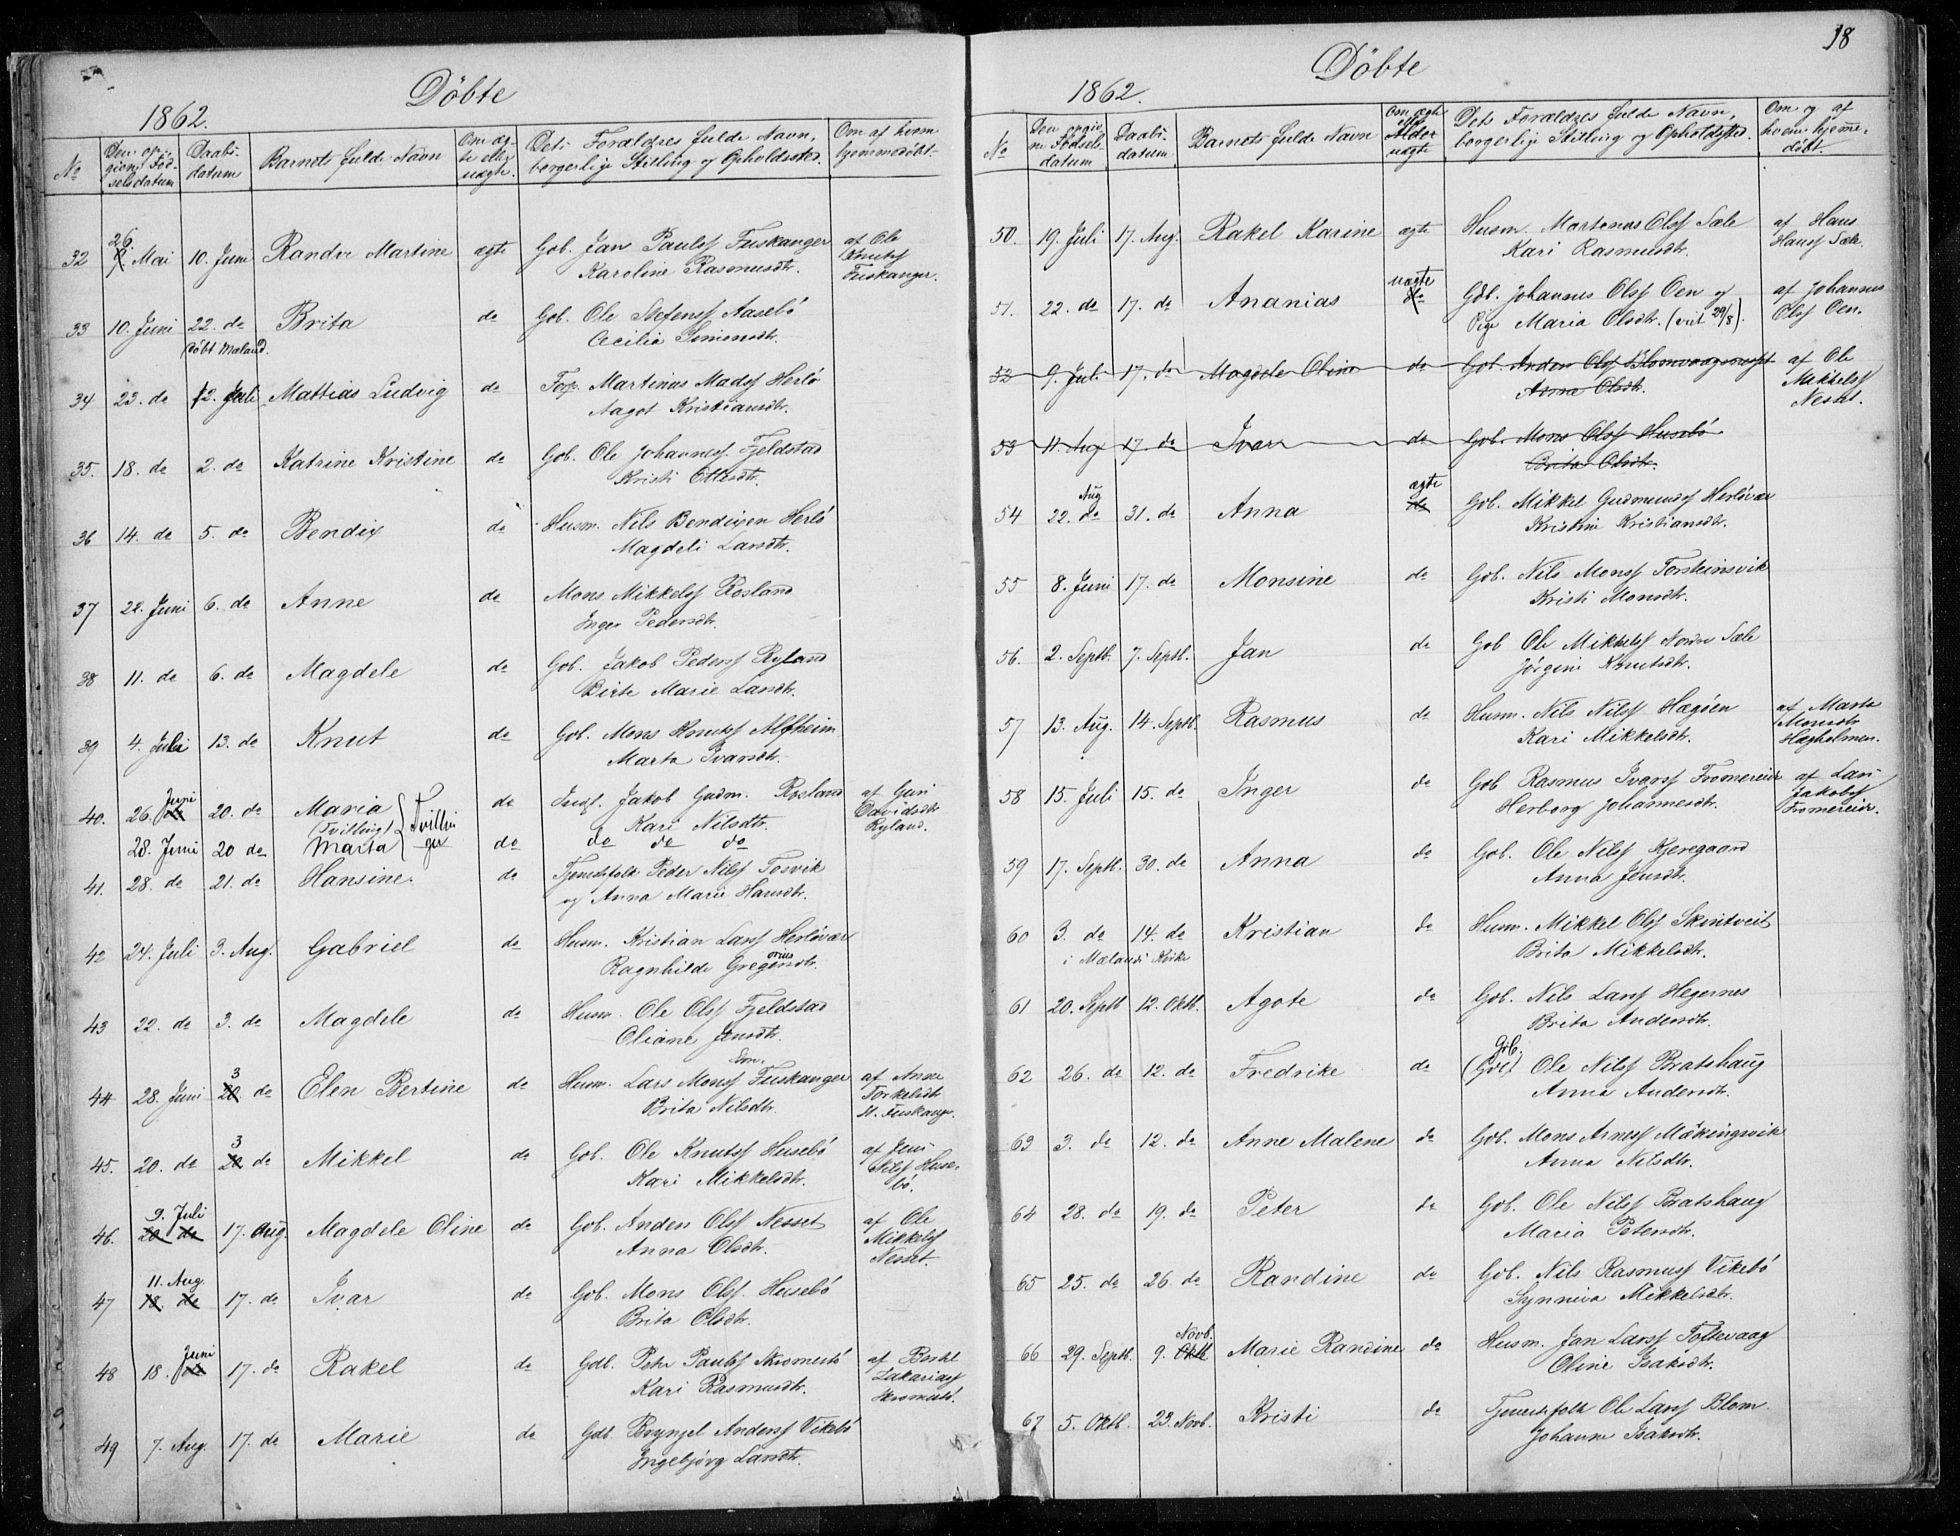 Döbte
1862.
No
Den op-
givne Föd-
selsdatum
Daabs-
datum
Barnets fulde Navn
Om æg-
te eller
uægte.
Dets Forældres fulde Navn,
borgerlige Stilling og Opholdssted.
Om af hvem
hjemmedöbt.
32 26. Mai 10. Juni Randve Martine ægte Gdb. Jan Paulsf Fuskanger af Ole
Karoline Rasmusdtr. Knutsf
Fuskanger.
33 10. Juni 22. do Brita do Gdb. Ole Stefensf Aasebö
Döbt Mæland. Cecilia Simonsdtr.
34 23. do 2. Juli Mattias Ludvig do Forp. Martinus Madsf Herlö
Aagot Kristiansdtr.
35. 18. do 2. do Katrine Kristine do Gdb. Ole Johannesf Fjeldstad
Kristi Ottesdtr.
36 14. do 5. do Bendix do Husm. Nils Bendixen Herlö
Magdeli Larsdtr.
37 22. Juni 6. do Anne do Mons Mikkelsf Rosland
Inger Pedersdtr.
38 11. do 6. do Magdele do Gdb. Jakob Pedersf Ryland
Birte Marie Larsdtr.
39 4. Juli 13. do Knut do Gdb. Mons Knutsf Alfheim
Marta Ivarsdtr.
40. 26. Juni 20. do Maria do Jakob Gudm. Rysland af Guri
(Tvilling) Tvillin Kari Nilsdtr. Davidsdtr
28. Juni 20 do Marta ger do do do do Ryland.
41. 28. do 21. do Hansine. do Tjenestfolk Peder Nilsf Tosvik
og Anna Marie Hansdtr.
42 24. Juli 3. Aug. Gabriel do Husm. Kristian Larsf Herlövær
Ragnhilde Gregoriusdtr.
43 22. do 3. do Magdele do Husm. Ole Olsf Fjeldstad
Oliane Jensdtr.
44 28. Juni 3 20 do Elen Bertine do Husm. Lars Monsf Fuskanger af Anne
Brita Nilsdtr. Torkelsdtr
Fuskanger.
45. 20. do 3 20 do Mikkel do Gdb. Ole Knutsf Husebö af Jens
Kari Mikkelsdtr. Nilsf Huse-
bö.
46. 9. Juli 20 do 17. Aug. Magdele Oline do Gdb. Anders Olsf Nesset af Ole
Anna Olsdtr. Mikkelsf
Nesset.
47 11. Aug. 18. do 17. do Ivar do Gdb. Mons Olsf. Husebö
Brita Olsdtr.
48 18. Juni 17. do Rakel do Gdb. Petr Paulsf Skromestö af Bertel
Kari Rasmusdtr. Zakariasf
Skromestö.
49 7. Aug. 17. do Marie do Gdb. Brynjel Andersf Vikebö
Ingebjörg Larsdtr.
18
Döbte
1862.
No
Den opgiv-
ne Födsels-
datum
Daabs-
datum
Barnets fulde Navn
Om ægte
eller
uægte
Dets Forældres fulde Navn,
borgerlige Stilling og Opholdssted.
Om og af
hvem hjemme-
döbt.
50. 19. Juli 17. Aug. Rakel Karine ægte Husm. Martenus Olsf Sæle af Hans
Kari Rasmusdtr. Hansf Sæle.
51. 22. do 17. do Ananias uægte do Gdb. Johannes Olsf Oen og af Johannes
Pige Maria Olsdtr. (viet 29/8). Olsf Oen.
52 9. Juli 17. do Magdele Oline do Gdb. Anders Olsf Blomvaagnesset af Ole
Anna Olsdtr. Mikkelsf
Nesset.
53 11. Aug 17. do Ivar do Gdb. Mons Olsf Husebö
Brita Olsdtr.
54 22. Aug do 31. do Anna ægte do Gdb. Mikkel Gudmundsf Herlövær
Kristine Kristiansdtr.
55 8. Juni 17. do Monsine do Gdb. Nils Monsf Torsteinsvik
Kristi Monsdtr.
56. 2. Septb. 7. Septb. Jan do Gdb Ole Mikkelsf Nordre Sæle
Jörgine Knutsdtr.
57 13. Aug. 14. Septb. Rasmus do Husm. Nils Nilsf Hægöen af Marta
Kari Mikkelsdtr. Monsdtr
Hægholmen.
58 15. Juli 15. do Inger do Gdb Rasmus Ivarsf Fromereide af Lars
Herborg Johannesdtr. Jakobsf
Fromereide.
59 17. Septb. 30. do Anna do Gdb. Ole Nilsf Kjeregaard
Anna Jensdtr.
60 3. do 14. do Kristian do Husm. Mikkel Olsf Skintveit
i Mælands Kirke Brita Mikkelsdtr.
61 20. Septb 12. Oktb. Agote do Gdb. Nils Larsf Hegernes
Brita Andersdtr.
62 26. do 12. do Fredrike do Gdb. Ole Nilsf Bratshaug
Anna Andersdtr.
63 3. do 12. do Anne Malene do Gdb. Mons Arnesf Mökingsvik
Anna Nilsdtr.
64 28. do 19. do Peter do Gdb. Ole Nilsf Bratshaug
Maria Petersdtr.
65 25. do 26. do Randine do Gdb. Nils Rasmusf Vikebö
Synneva Mikkelsdtr.
66 29. Septb. 9. Novb. Oktb Marie Randine do Husm. Jan Larsf Toftevaag
Oline Isaksdtr.
67 5. Oktb. 23. Novb. Kristi do Tjenestfolk Ole Larsf Blom
Johanne Isaksdtr.